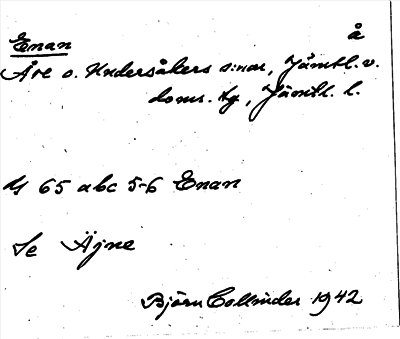 Enan å
Åre o. Undersåkers s:nar, Jämtl. v.
doms. tg, Jämtl. l.
U 65 abc 5-6 Enan
Se Äjne
Björn Collinder 1942